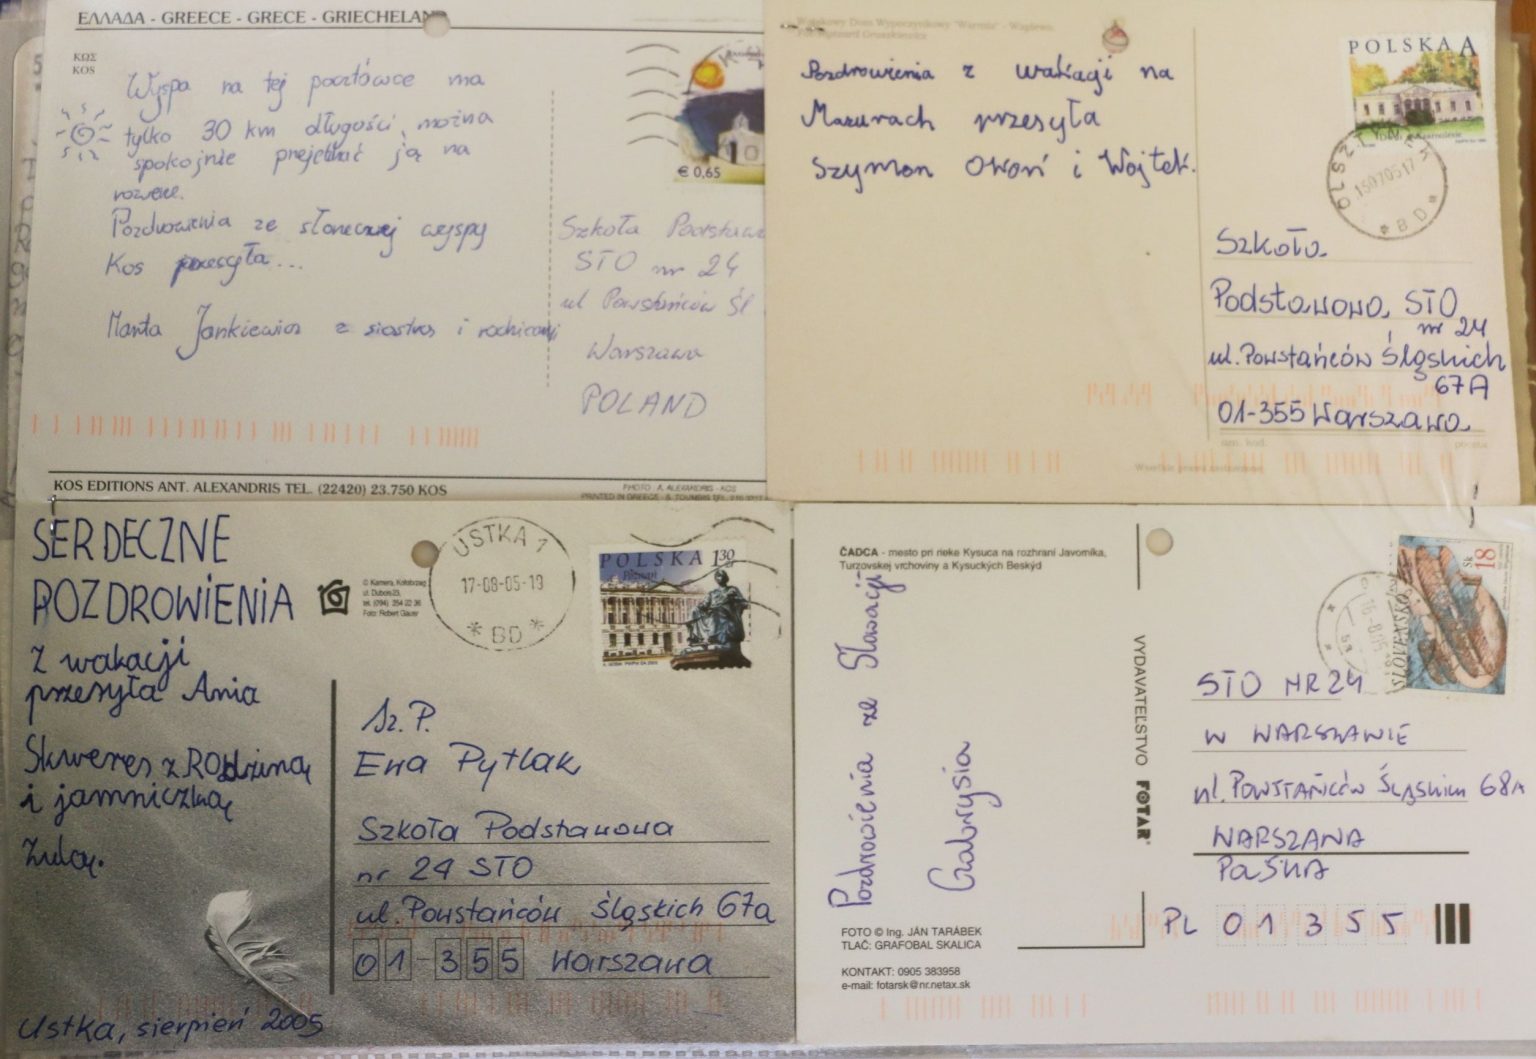 ΕΛΛΑΔΑ - GREECE - GRECE - GRIECHELAND
ΚΩΣ
KOS
Wyspa na tej pocztówce ma
tylko 30 km długości, można
spokojnie przejechać ją na
rowerze.
Pozdrowienia ze słonecznej wyspy
Kos przesyła...
Marta Jankiewicz z siostrą i rodzicami
€ 0,65
Szkoła Podstawow
STO nr 24
ul Powstańców Śl
Warszawa
POLAND
KOS EDITIONS ANT. ALEXANDRIS TEL. (22420) 23.750 KOS
PHOTO: A. ALEXANDRIS - KOS
PRINTED IN GREECE - S. TOUMBIS TEL. 210
Wczasowy Dom Wypoczynkowy
Pozdrowienia z wakacji na
Mazurach przesyła
Szymon Owoń i Wojtek.
POLSKA A
OLSZTYNEK
150705 17
* BD *
Szkoła
Podstawowa STO
nr 24
ul. Powstańców Śląskich
67A
01-355 Warszawa
SERDECZNE
POZDROWIENIA
z wakacji
przesyła Ania
Skweres z Rodziną
i jamniczką
Zulą.
Ustka, sierpień 2005
© Kamera, Kołobrzeg
ul. Dubois 23,
tel. (094) 354 22 36
Foto: Robert Gauer
USTKA 1
17-08-05-19
* BD *
POLSKA 1,30
Poznań
Sz. P.
Ewa Pytlak
Szkoła Podstawowa
nr 24 STO
ul. Powstańców Śląskich 67a
01-355 Warszawa
ČADCA - mesto pri rieke Kysuca na rozhraní Javorníka,
Turzovskej vrchoviny a Kysuckých Beskýd
Pozdrowienia ze Słowacji
Gabrysia
VYDAVATEĽSTVO FOTAR
18 Sk
SLOVENSKO
STO NR 24
W WARSZAWIE
ul. Powstańców Śląskich 68A
WARSZAWA
POLSKA
PL 01355
FOTO © Ing. JÁN TARÁBEK
TLAČ: GRAFOBAL SKALICA
KONTAKT: 0905 383958
e-mail: fotarsk@nr.netax.sk